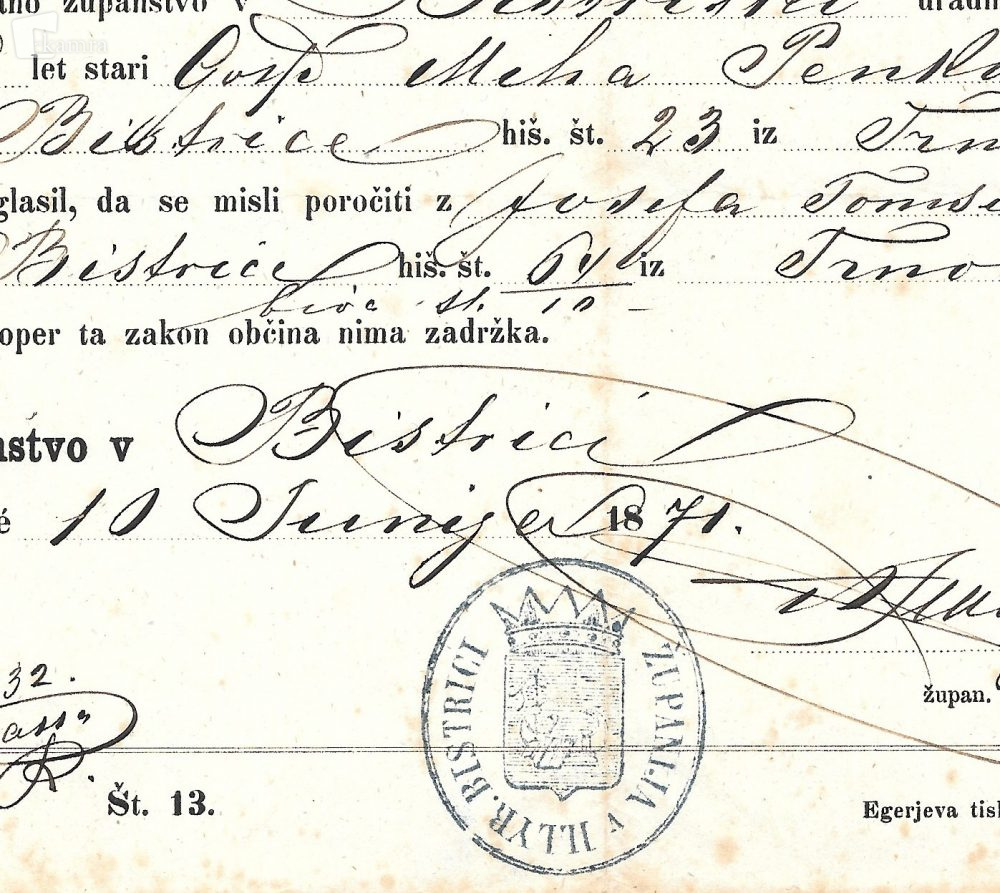 ano županstvo v Bistrici uradn
let stari Gosp Miha Penku
Bistrice hiš. št. 23 iz Trn
glasil, da se misli poročiti z Josefa Tomši
Bistrice hiš. št. 64 iz Trno
št. 10 –
oper ta zakon občina nima zadržka.
nstvo v Bistrici
é 10 Junija 1871.
32.
župan.
ŽUPANIJA V ILLYR. BISTRICI
Št. 13.
Egerjeva tisk
kamra